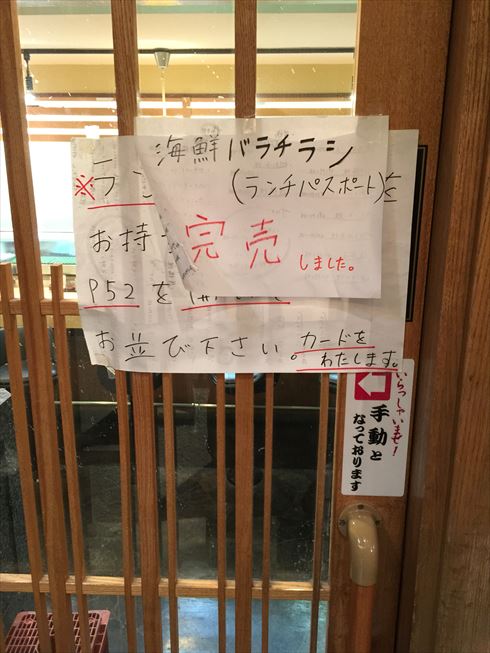 海鮮バラチラシ
完売しました。
※ラ
(ランチパスポート)を
お持
P52を
お並び下さい。カードを
わたします。
いらっしゃいませ!
手動と
なっております